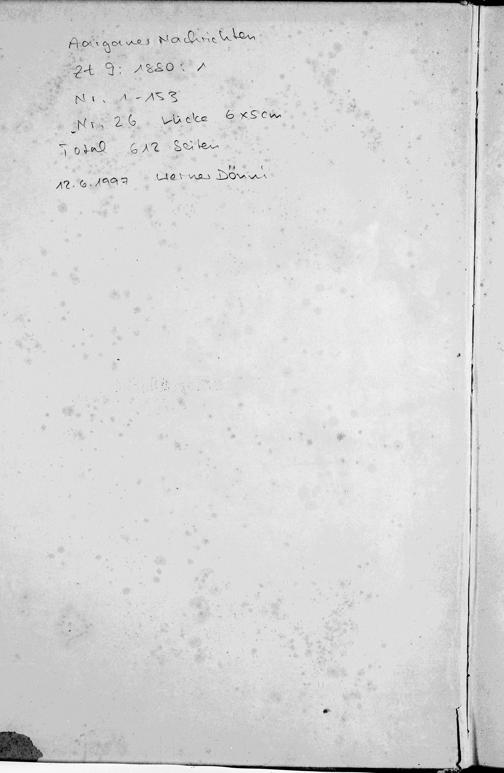 Aargauer Nachrichten
Zt 9: 1880: 1
Nr. 1-153
Nr. 26 Lücke 6x5cm
Total 612 Seiten
12.6.1997 Werner Dönni